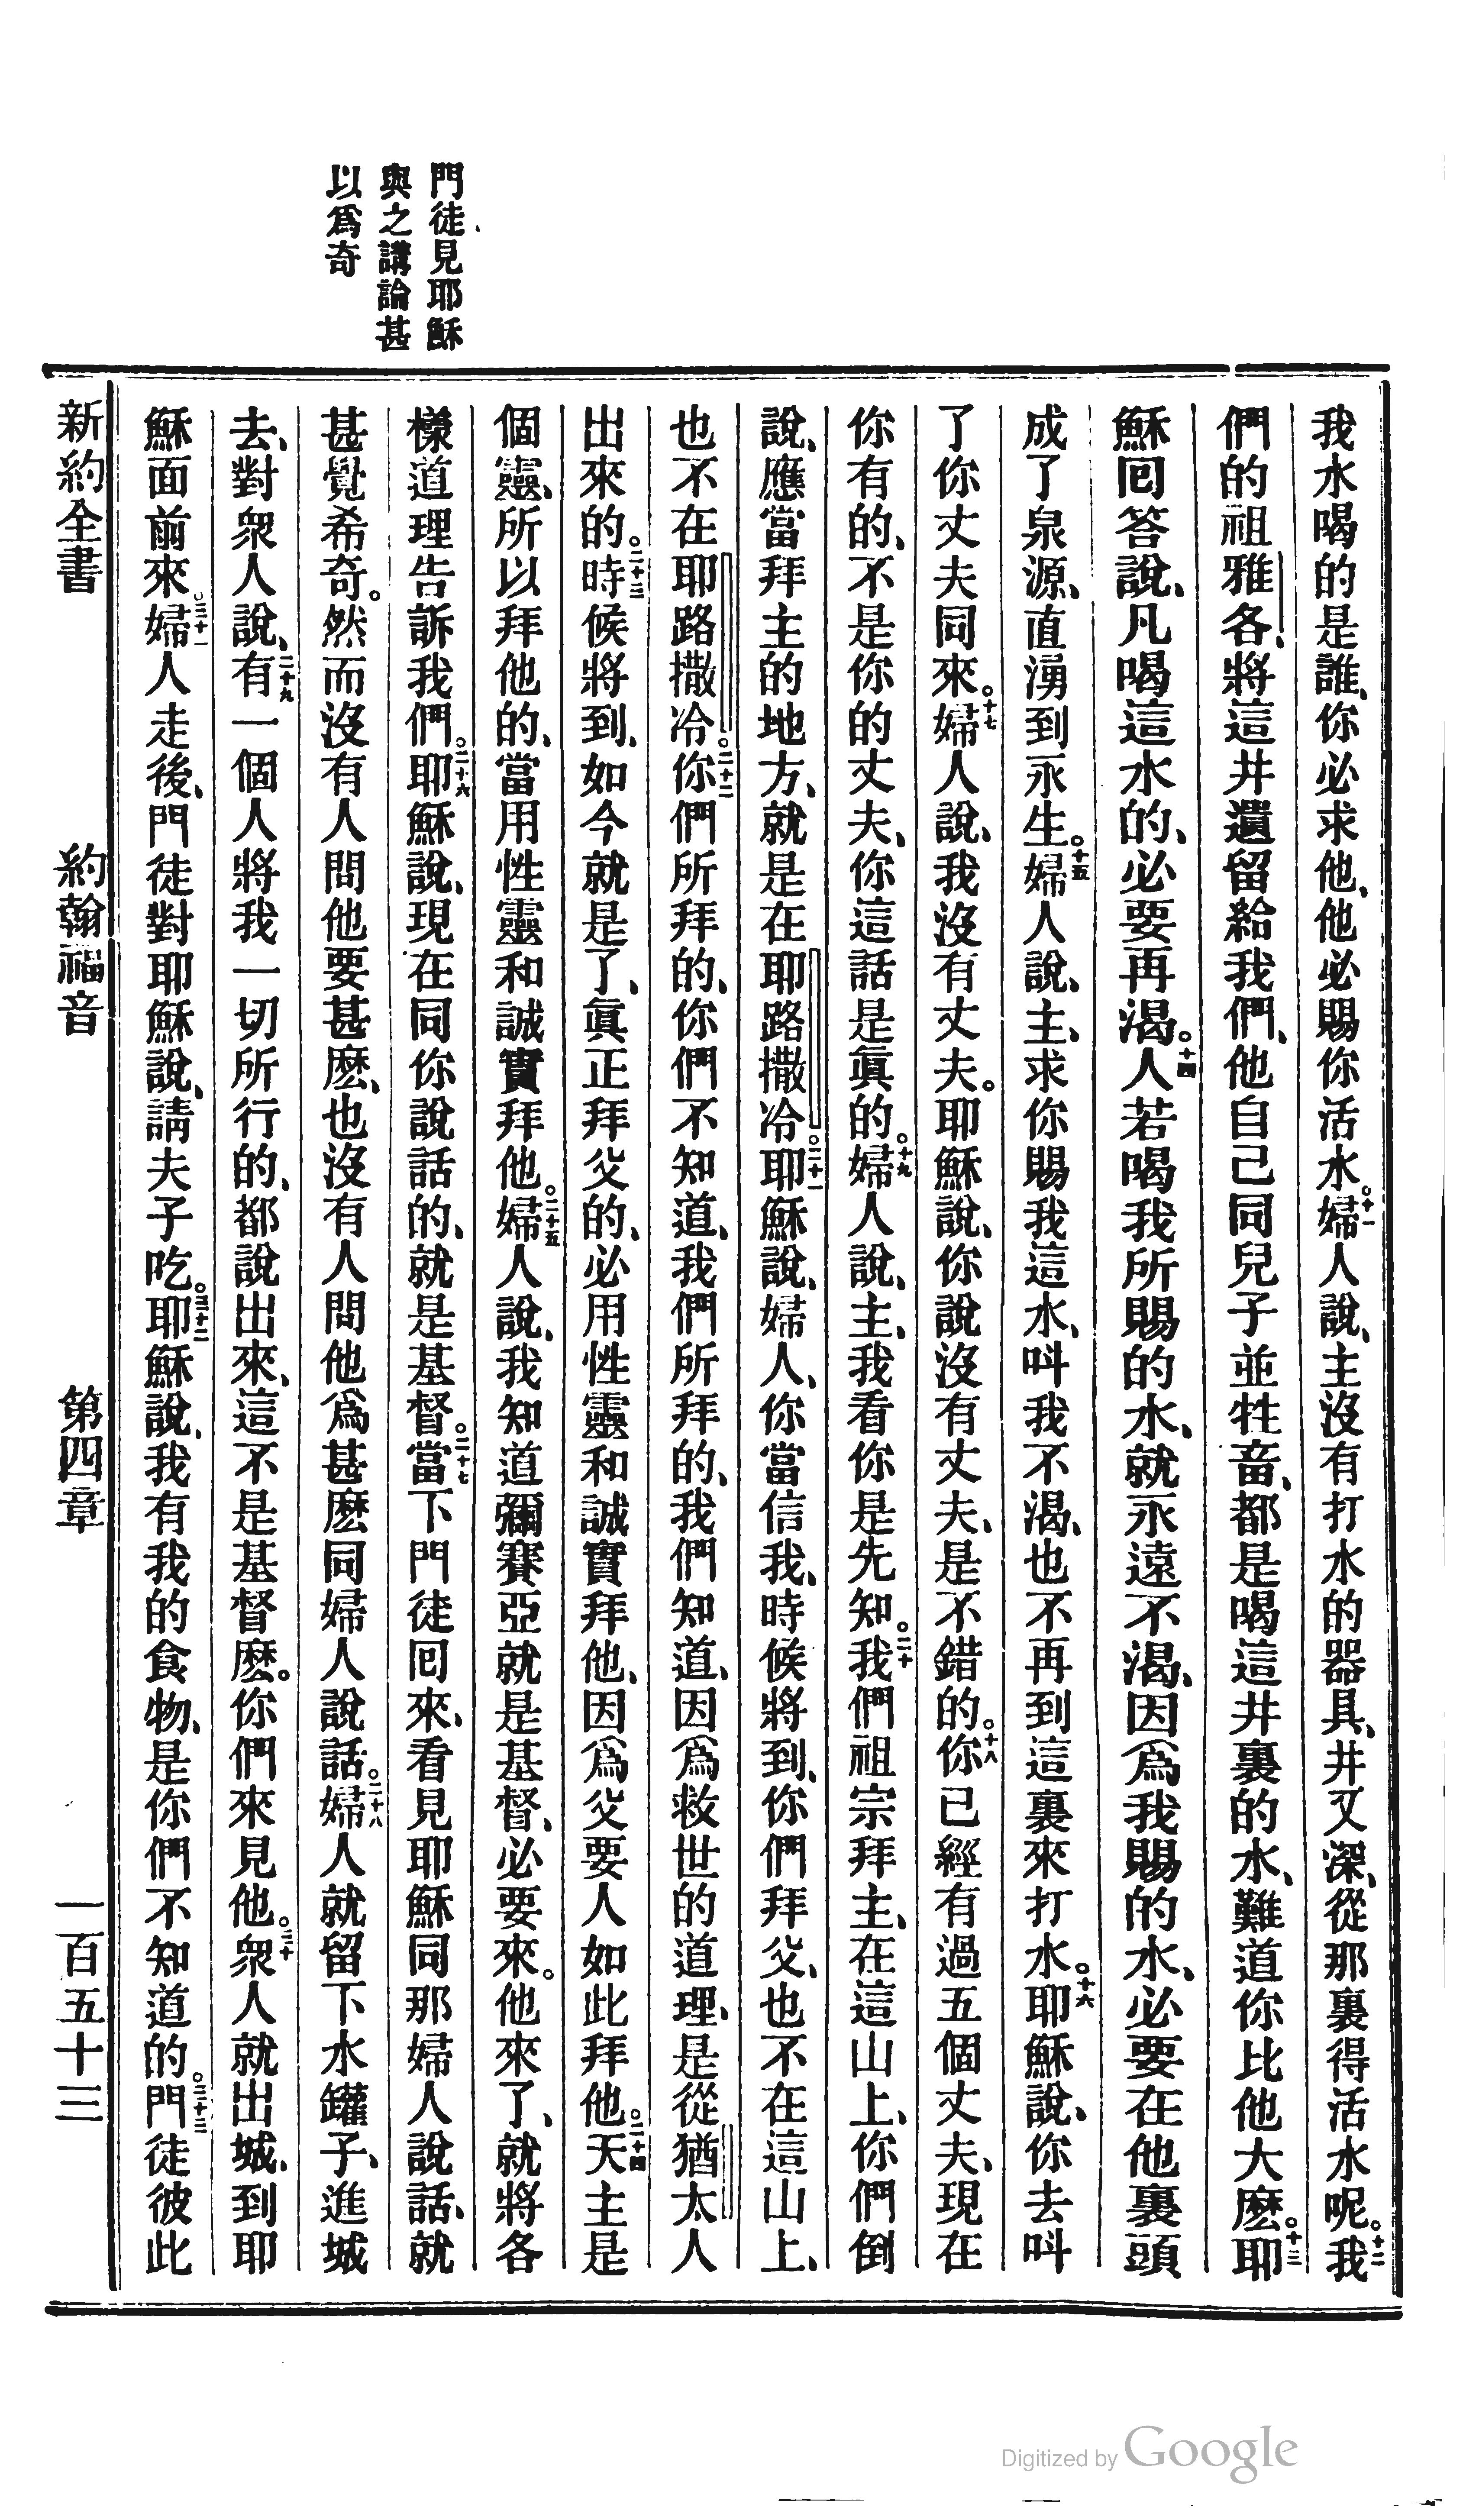 門徒見耶穌
與之講論甚
以爲奇
我水喝的是誰、你必求他、他必賜你活水。十一婦人說、主沒有打水的器具、井又深、從那裏得活水呢。十二我
們的祖雅各、將這井遺留給我們、他自己同兒子並牲畜、都是喝這井裏的水、難道你比他大麽。十三耶
穌回答說、凡喝這水的、必要再渴。十四人若喝我所賜的水、就永遠不渴、因爲我賜的水、必要在他裏頭
成了泉源、直湧到永生。十五婦人說、主、求你賜我這水、呌我不渴、也不再到這裏來打水。十六耶穌說、你去呌
了你丈夫同來。十七婦人說、我沒有丈夫。耶穌說、你說沒有丈夫、是不錯的。十八你已經有過五個丈夫、現在
你有的、不是你的丈夫、你這話是眞的。十九婦人說、主、我看你是先知。二十我們祖宗拜主、在這山上、你們倒
說、應當拜主的地方、就是在耶路撒冷。二十一耶穌說、婦人、你當信我、時候將到、你們拜父、也不在這山上、
也不在耶路撒冷。二十二你們所拜的、你們不知道、我們所拜的、我們知道、因爲救世的道理、是從猶太人
出來的。二十三時候將到、如今就是了、眞正拜父的、必用性靈和誠實拜他、因爲父要人如此拜他。二十四天主是
個靈、所以拜他的、當用性靈和誠實拜他。二十五婦人說、我知道彌賽亞就是基督、必要來。他來了、就將各
樣道理告訴我們。二十六耶穌說、現在同你說話的、就是基督。二十七當下門徒回來、看見耶穌同那婦人說話、就
甚覺希奇。然而沒有人問他要甚麽、也沒有人問他爲甚麽同婦人說話。二十八婦人就留下水罐子、進城
去、對衆人說、二十九有一個人將我一切所行的、都說出來、這不是基督麽。你們來見他。三十衆人就出城、到耶
穌面前來。三十一婦人走後、門徒對耶穌說、請夫子吃。三十二耶穌說、我有我的食物、是你們不知道的。三十三門徒彼此
新約全書 約翰福音 第四章 一百五十三
Digitized by Google